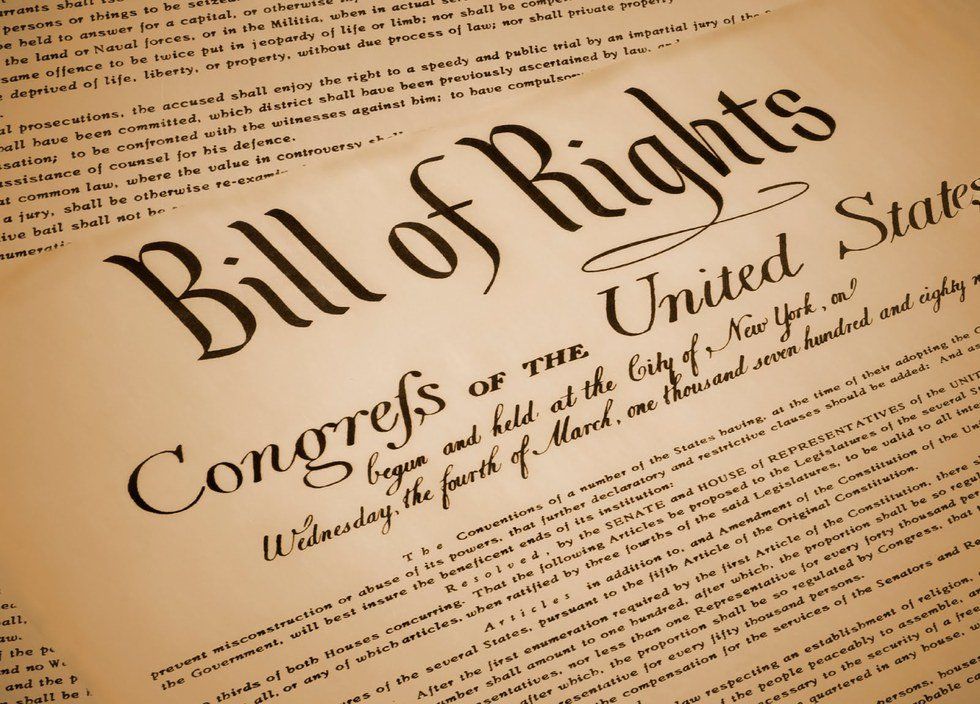 persons or things to be seized
be held to answer for a capital, or otherwise
the land or Naval forces, or in the Militia, when in actual
same offence to be twice put in jeopardy of life or limb; nor shall be
deprived of life, liberty, or property, without due process of law; nor shall private property
prosecutions, the accused shall enjoy the right to a speedy and public trial by an impartial jury of the
have been committed, which district shall have been previously ascertained by law,
to be confronted with the witnesses against him; to have
assistance of counsel for his defence.
common law, where the value in controversy
a jury, shall be otherwise
bail shall not be
Bill of Rights
Congreſs OF THE United States
begun and held at the City of New York, on
Wednesday, the fourth of March, one thousand seven hundred and eighty
The Conventions of a number of the States having, at the time of their adopting the
prevent misconstruction or abuse of its powers, that further declaratory and restrictive clauses should be added: And as
the Government, will best insure the beneficent ends of its institution:
Resolved, by the SENATE and HOUSE of REPRESENTATIVES of the
thirds of both Houses concurring. That the following Articles be proposed to the Legislatures of the several
all, or any of which articles, when ratified by three fourths of the said Legislatures, to be valid to all
Articles in addition to, and Amendment of the Constitution of the
of the several States, pursuant to the fifth Article of the Original Constitution.
After the first enumeration required by the first Article of the Constitution, there
shall amount to one hundred, after which, the proportion shall be so
nor less than one Representative for every forty thousand
after which, the proportion shall be so regulated by Congress, that
for every fifty thousand persons.
compensation for the services of the Senators and
law respecting an establishment of religion,
of the people peaceably to assemble,
necessary to the security of a
quartered in any house,
persons,